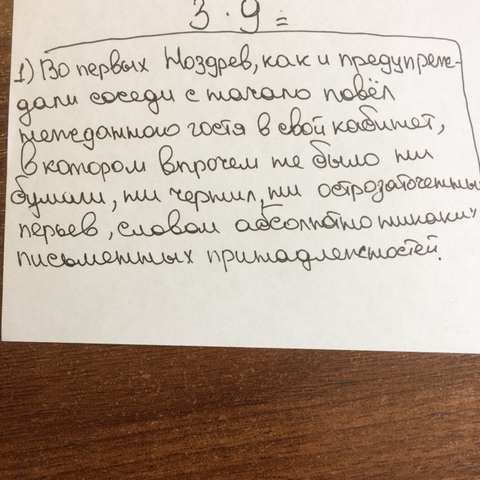 3 · 9 =
1) Во первых Ноздрев, как и предупреж-
дали соседи с начало повёл
нежданного гостя в свой кабинет,
в котором впрочем не было ни
бумаги, ни чернил, ни острозаточенных
перьев, словом абсолютно никаких
письменных принадлежностей.